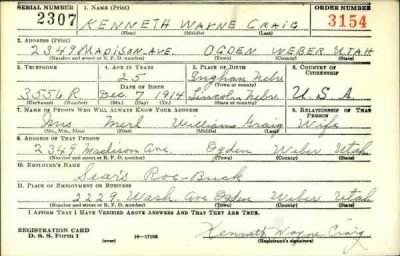 SERIAL NUMBER 1. Name (Print) ORDER NUMBER
2307 KENNETH WAYNE CRAIG 3154
(First) (Middle) (Last)
2. Address (Print)
2349 MADISON AVE. OGDEN WEBER UTAH
(Number and street or R. F. D. number) (Town) (County) (State)
3. Telephone 4. Age in Years 5. Place of Birth 6. Country of Citizenship
25 Nebr.
Date of Birth (Town or county)
3556 R. Dec 7 1914 Lincoln Nebr. U.S.A.
(Exchange) (Number) (Mo.) (Day) (Yr.) (State or country)
7. Name of Person Who Will Always Know Your Address 8. Relationship of That Person
Merl Williams Craig Wife
(Mr., Mrs., Miss) (First) (Middle) (Last)
9. Address of That Person
2349 Madison Ave Ogden Weber Utah
(Number and street or R. F. D. number) (Town) (County) (State)
10. Employer's Name
Sears Roe-Buck
11. Place of Employment or Business
2229 Wash. Ave Ogden Weber Utah
(Number and street or R. F. D. number) (Town) (County) (State)
I Affirm That I Have Verified Above Answers and That They Are True.
Registration Card
D. S. S. Form 1 16—17105 Kenneth Wayne Craig
(Registrant's signature)